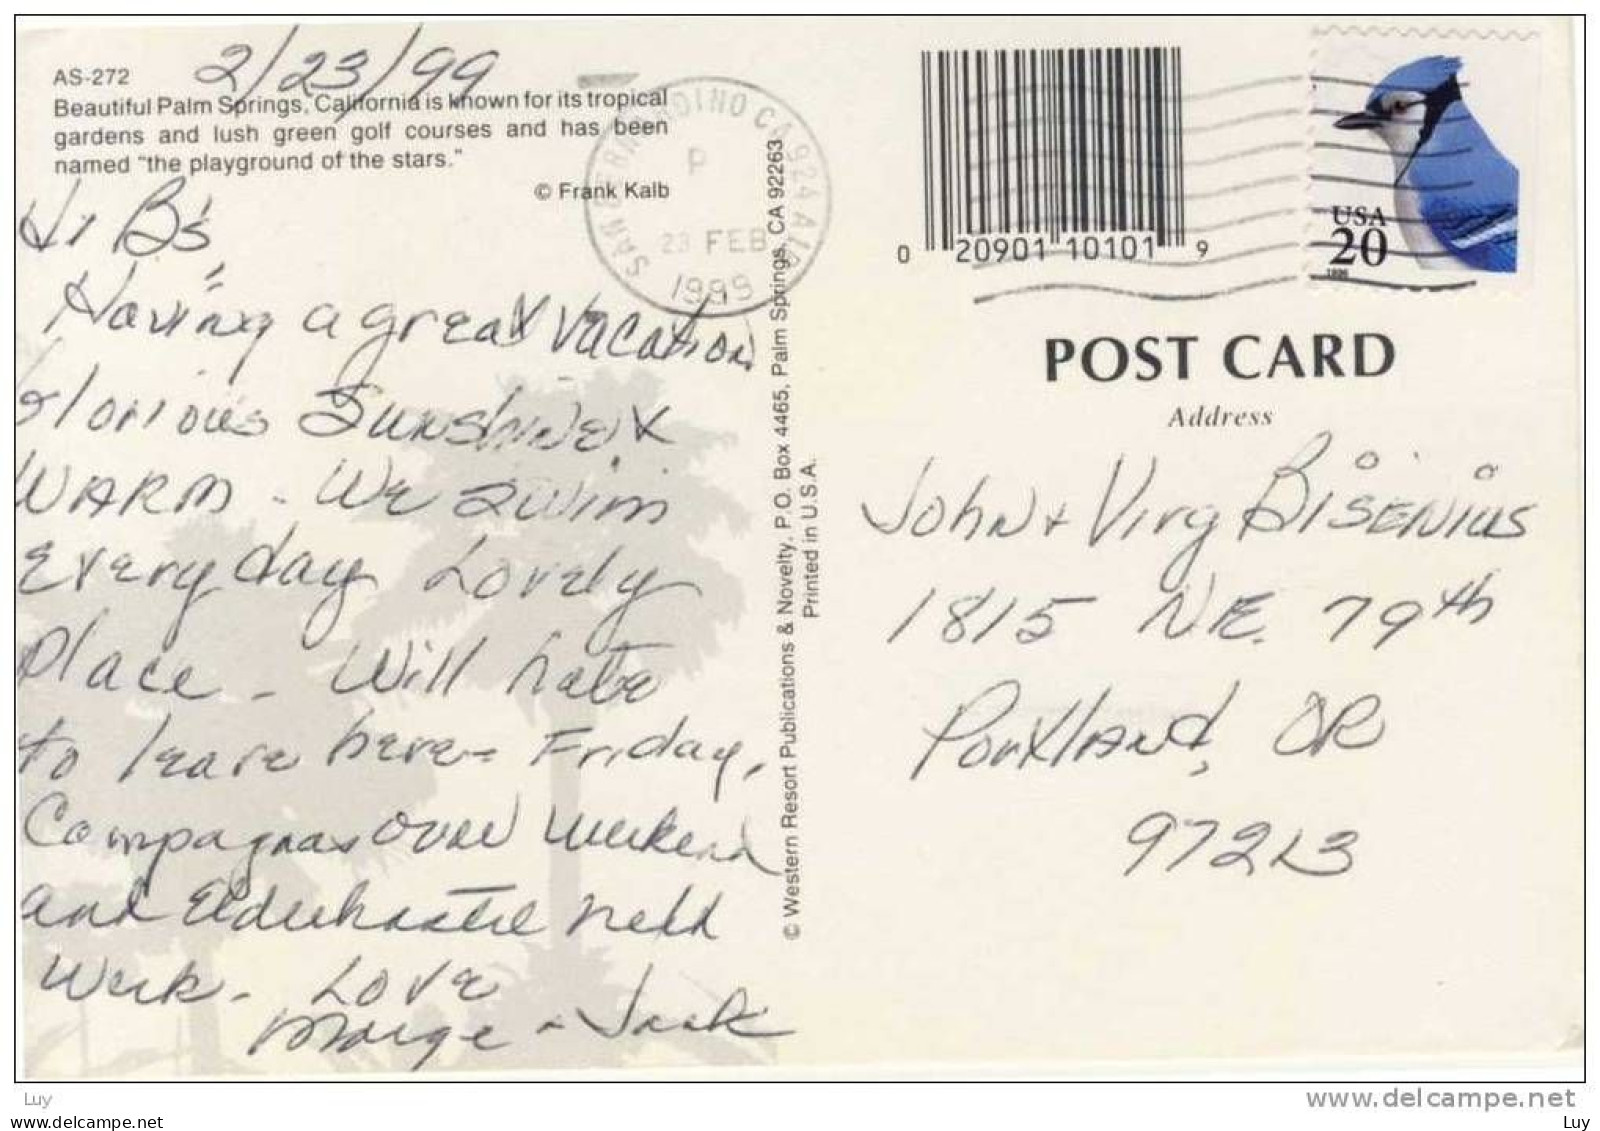 2/23/99
AS-272
Beautiful Palm Springs, California is known for its tropical
gardens and lush green golf courses and has been
named "the playground of the stars."
© Frank Kalb
Hi B's
Having a great vacation
Glorious Sunshine &
WARM - We swim
every day Lovely
Place - Will hate
to leave here - Friday,
Compagnas over weekend
and Elderhostel next
week - Love
Marge & Jack
© Western Resort Publications & Novelty, P.O. Box 4465, Palm Springs, CA 92263
Printed in U.S.A.
SAN BERNARDINO CA 924
P
23 FEB
1999
0 20901 10101 9
USA
20
1996
POST CARD
Address
John & Virg Bisenius
1815 N.E. 79th
Portland, OR
97213
Luy
www.delcampe.net
luy@luy.com
Luy